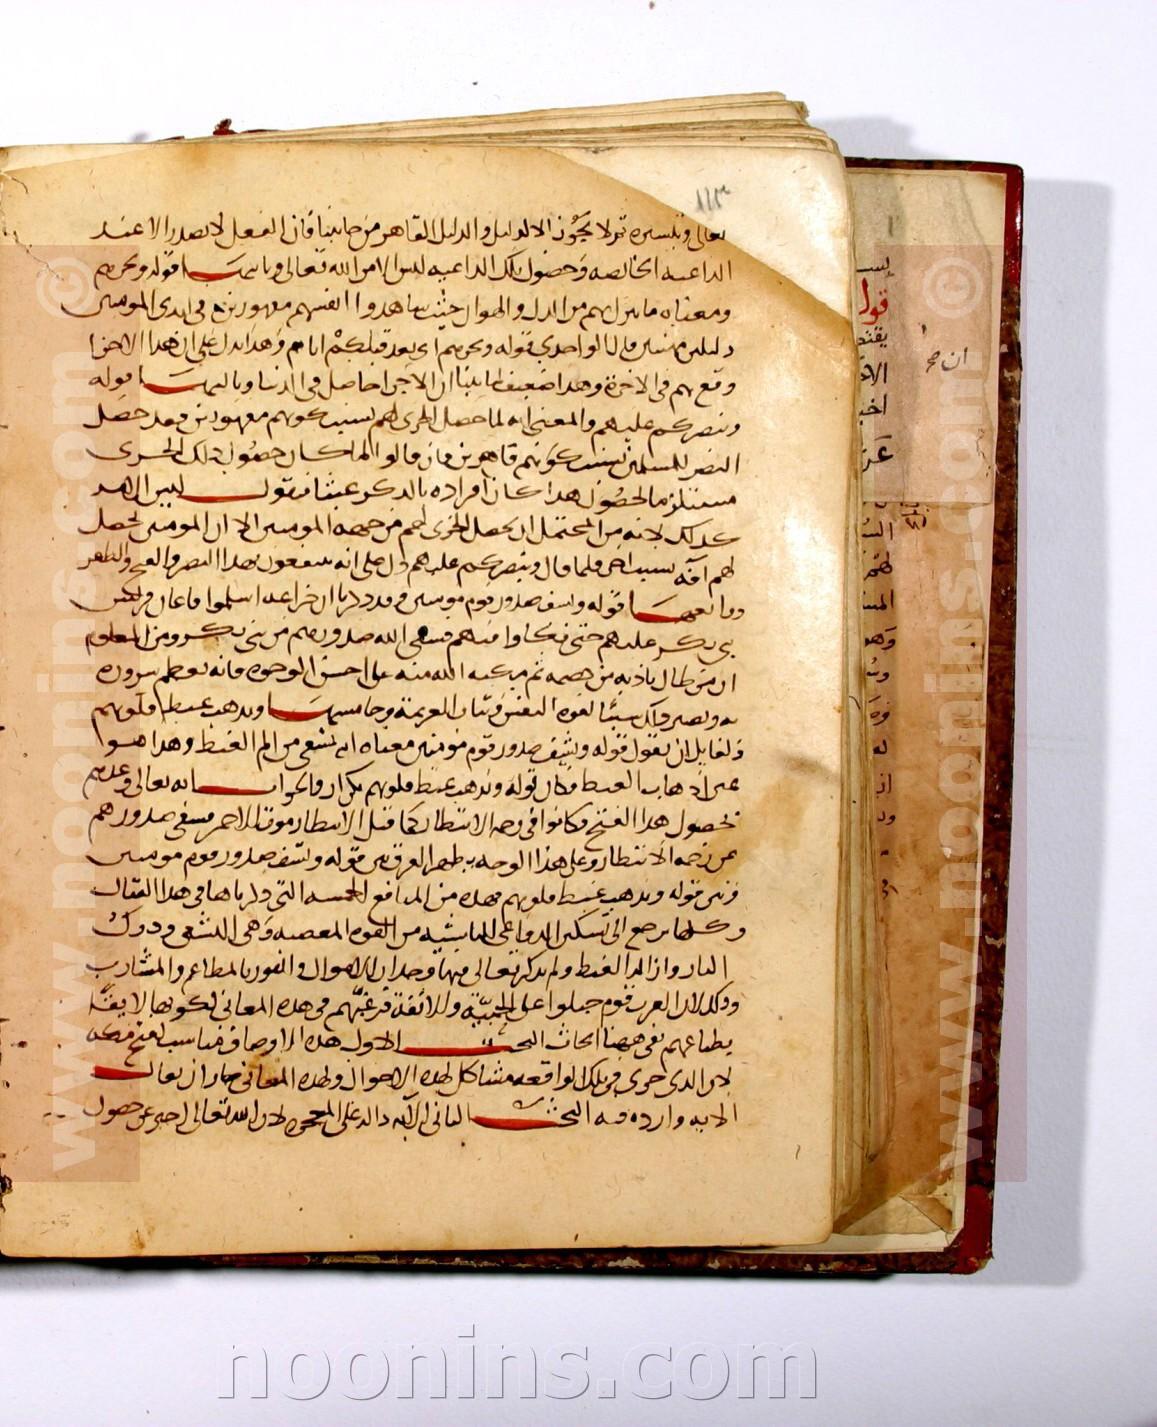 ١١٣
تعالى وتيسيره قولا يجوز الا لدليل والدليل القاهر من جانبنا فان الفعل لا يصدر الا عند
الداعيه الخالصه وحصول تلك الداعيه ليس الا من الله تعالى وثانيها قوله ويخزهم
ومعناه ما ينزل بهم من الذل والهوان حيث شاهدوا انفسهم مقهورين في ايدي المومنين
ذليلين مهينين قال الواحدي قوله ويخزهم اي بعد قتلكم اياهم وهذا يدل على ان هذا الاخزا
وقع بهم في الاخرة وهذا ضعيف لما بينا ان الاخزا حاصل في الدنيا وثالثها قوله
وينصركم عليهم والمعنى انه لما حصل الخزى لهم بسبب كونهم مقهورين فقد حصل
النصر للمسلمين بسبب كونهم قاهرين فان قالوا لما كان حصول ذلك الخزى
مستلزما لحصول هذا كان افراده بالذكر عبثا فنقول ليس الامر
كذلك لانه من المحتمل ان يحصل الخزى لهم من جهة المومنين الا ان المومنين يحصل
لهم افة بسبب اخر فلما قال وينصركم عليهم دل على انه ينتفعون بهذا النصر والفتح والظفر
ورابعها قوله ويشف صدور قوم مومنين وقد ذكرنا ان خزاعه اسلموا فاعان قريش
بني بكر عليهم حتى نكلوا فيهم فشفى الله صدورهم من بني بكر ومن المعلوم
ان من طال تاذيه من خصمه ثم مكنه الله منه على احسن الوجوه فانه يعظم سروره
به ويصير ذلك سببا لقوة النفس وثبات العزيمة وخامسها ويذهب غيظ قلوبهم
ولقايل ان يقول قوله ويشف صدور قوم مومنين معناه انه يشفى من الم الغيظ وهذا هو
عين اذهاب الغيظ فكان قوله ويذهب غيظ قلوبهم تكرار والجواب انه تعالى وعدهم
بحصول هذا الفتح فكانوا في زحمة الانتظار كما قيل الانتظار موت الاحمر فشفى صدورهم
من زحمة الانتظار وعلى هذا الوجه يظهر الفرق بين قوله ويشف صدور قوم مومنين
وبين قوله ويذهب غيظ قلوبهم فهذه هي المنافع الخمسه التي ذكرها في هذا القتال
وكلها يرجع الى تسكين الدواعي الناشيه من القوة الغضبيه وهي التشفي ودرك
الثار وازالة الغيظ ولم يذكر تعالى فيها وجدان الاموال والفوز بالمطاعم والمشارب
وذلك لان العرب قوم جبلوا على الحمية والانفة فرغبهم في هذه المعاني لكونها لايقة
بطباعهم بقي ههنا ابحاث البحث الاول هذه الاوصاف مناسب لفتح مكه
لان الذي جرى في تلك الواقعه مشاكل لهذه الاحوال ولهذه المعاني جاز ان يقال
الايه وارده فيه البحث الثاني الاية دالة على المعجزه لان الله تعالى اخبر عن حصول
قول
ان صح
www.noonins.com ©
www.noonins.com ©
noonins.com